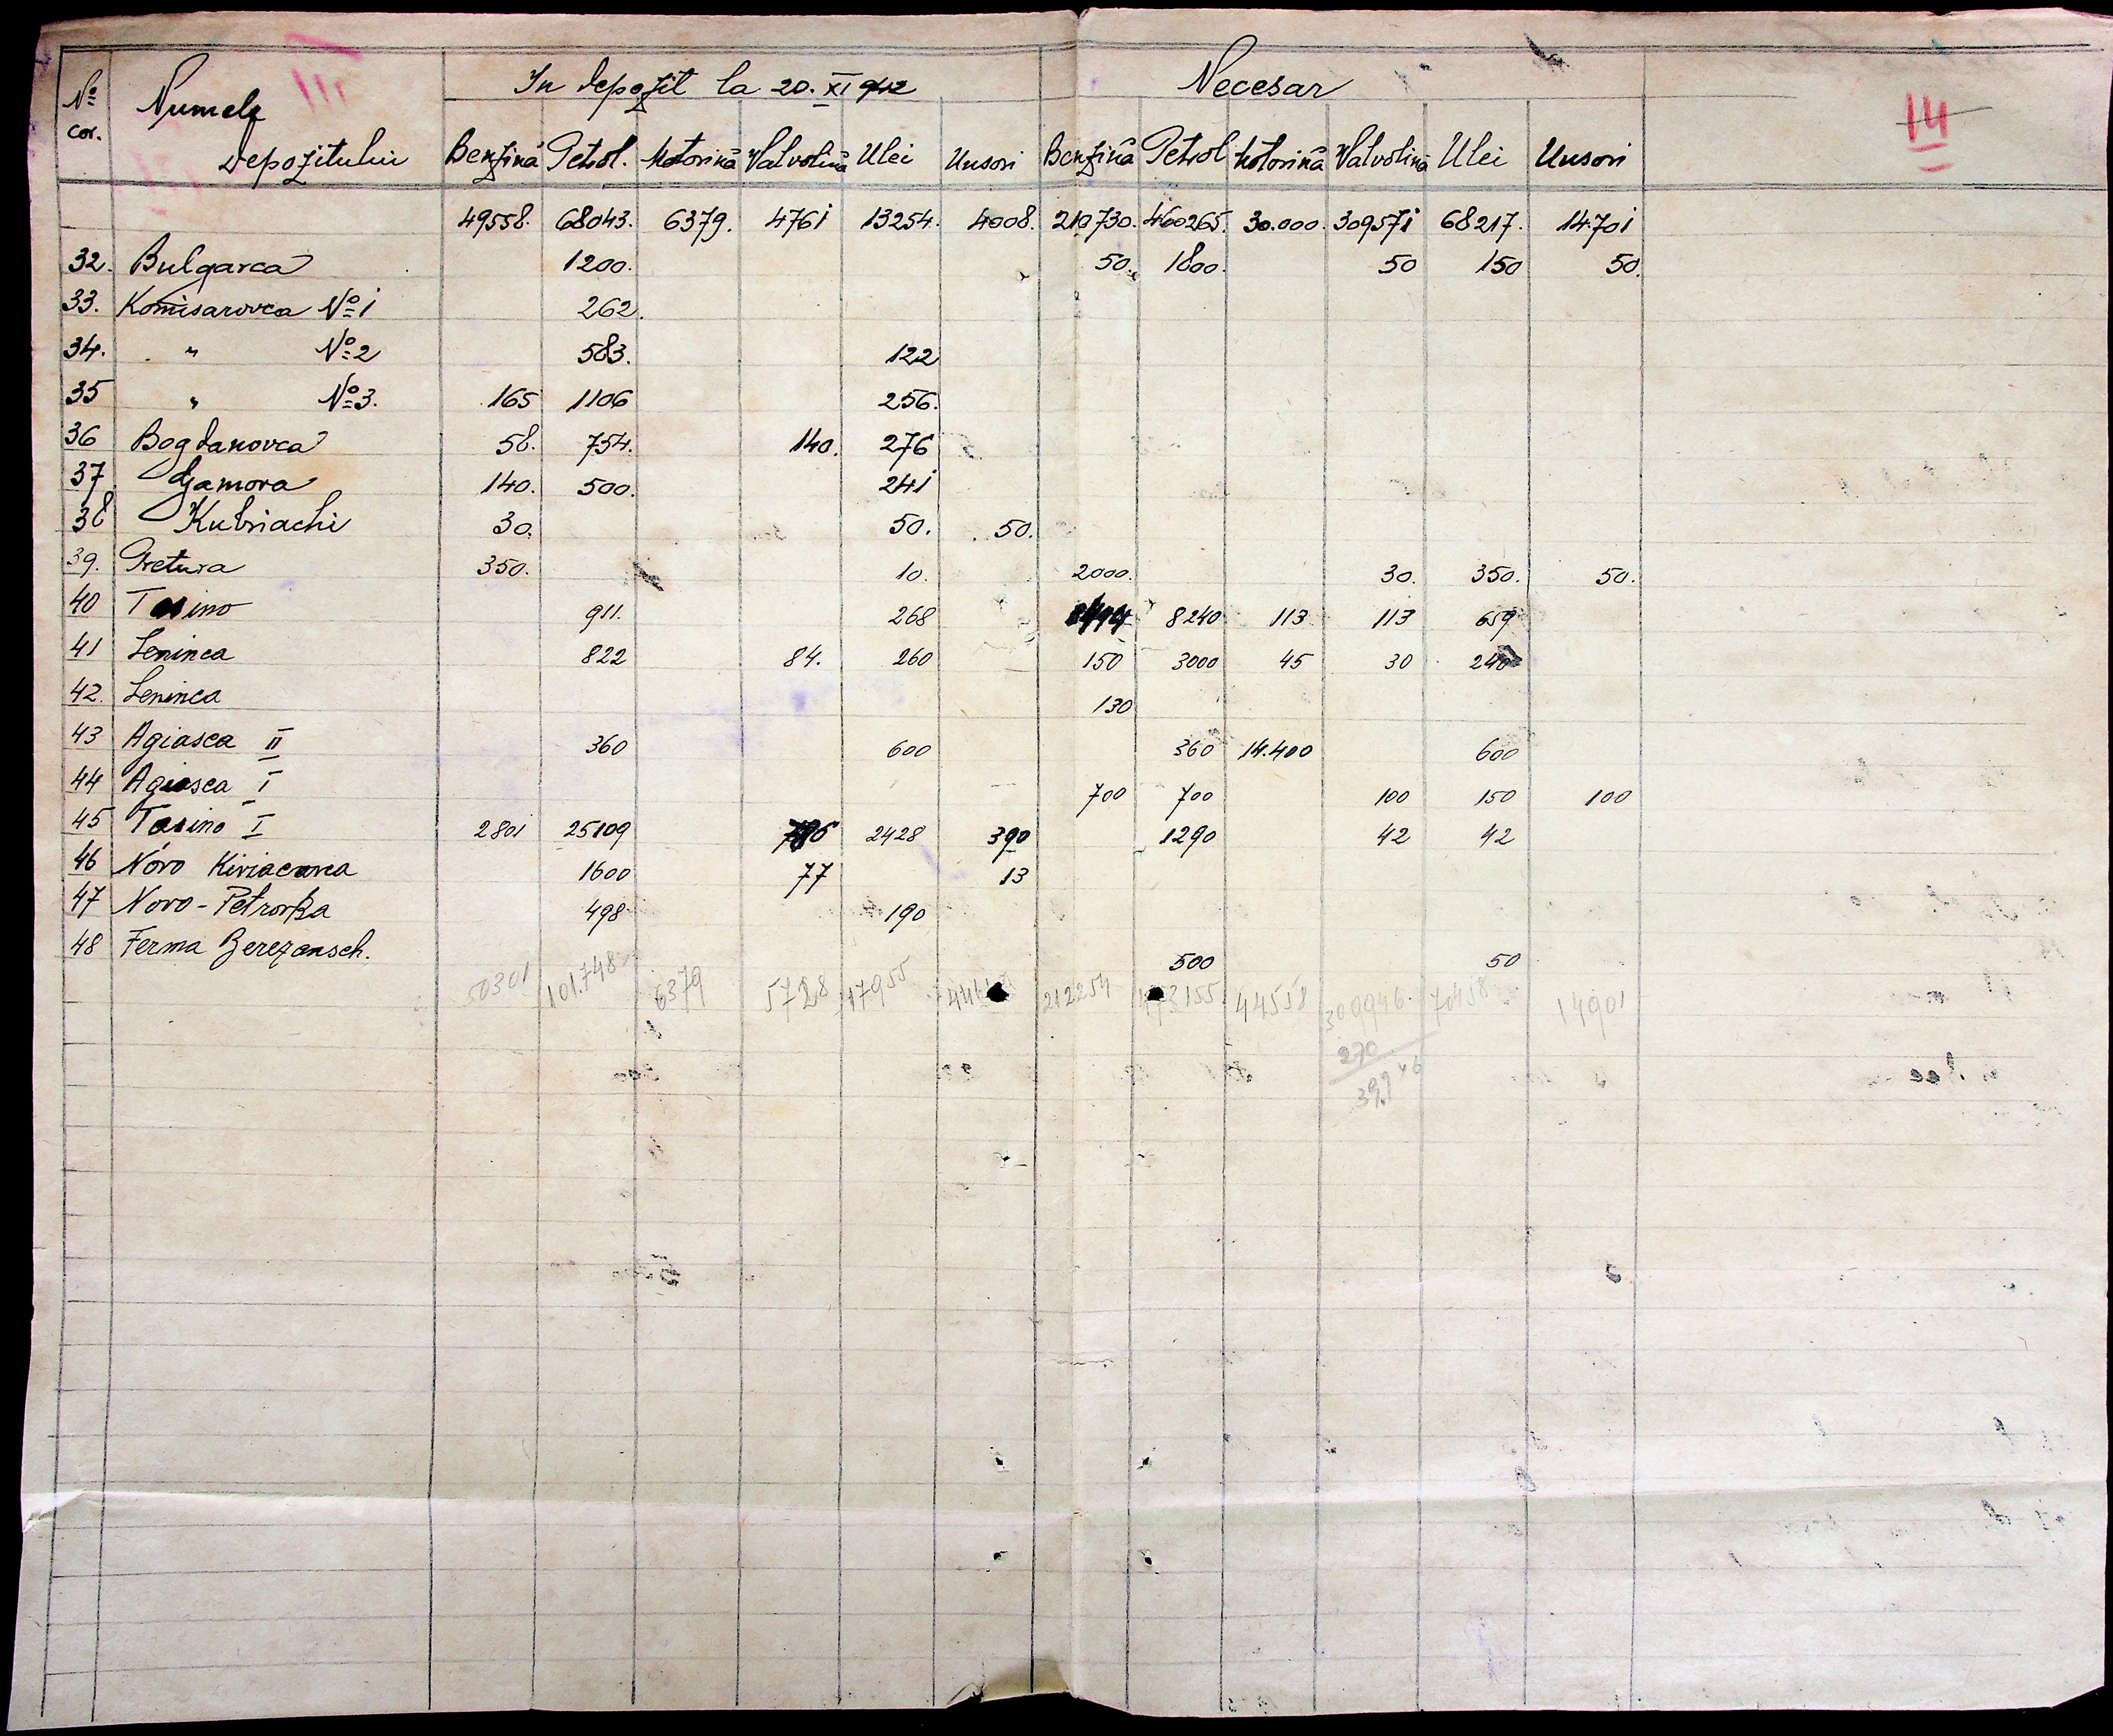 III
14
In depozit la 20. XI 942 Necesar
No cor. Numele Depozitului Benzină Petrol. Motorină Valvolină Ulei Unsori Benzină Petrol Motorină Valvolină Ulei Unsori
49558. 68043. 6379. 4761 13254. 4008. 210730. 460265. 30.000. 309571 68217. 14701
32. Bulgarca 1200. 50. 1800. 50 150 50.
33. Komisarovca No 1 262.
34. " No 2 583. 122
35 " No 3. 165 1106 256.
36 Bogdanovca 58. 754. 140. 276
37 Gamora 140. 500. 241
38 Kubriachi 30. 50. 50.
39. Pretura 350. 10. 2000. 30. 350. 50.
40 Tasino 911. 268 8240 113 113 659
41 Leninca 822 84. 260 150 3000 45 30 240
42. Leninca 130
43 Agiasca II 360 600 360 14.400 600
44 Agiasca I 700 700 100 150 100
45 Tasino I 2801 25109 2428 390 1290 42 42
46 Novo Kiriacovca 1600 77 13
47 Novo-Petrovka 498 190
48 Ferma Berezansch. 500 50
50301 101.748 6379 5728 17955 212254 473155 44558 309946. 70458 14901
270
39946